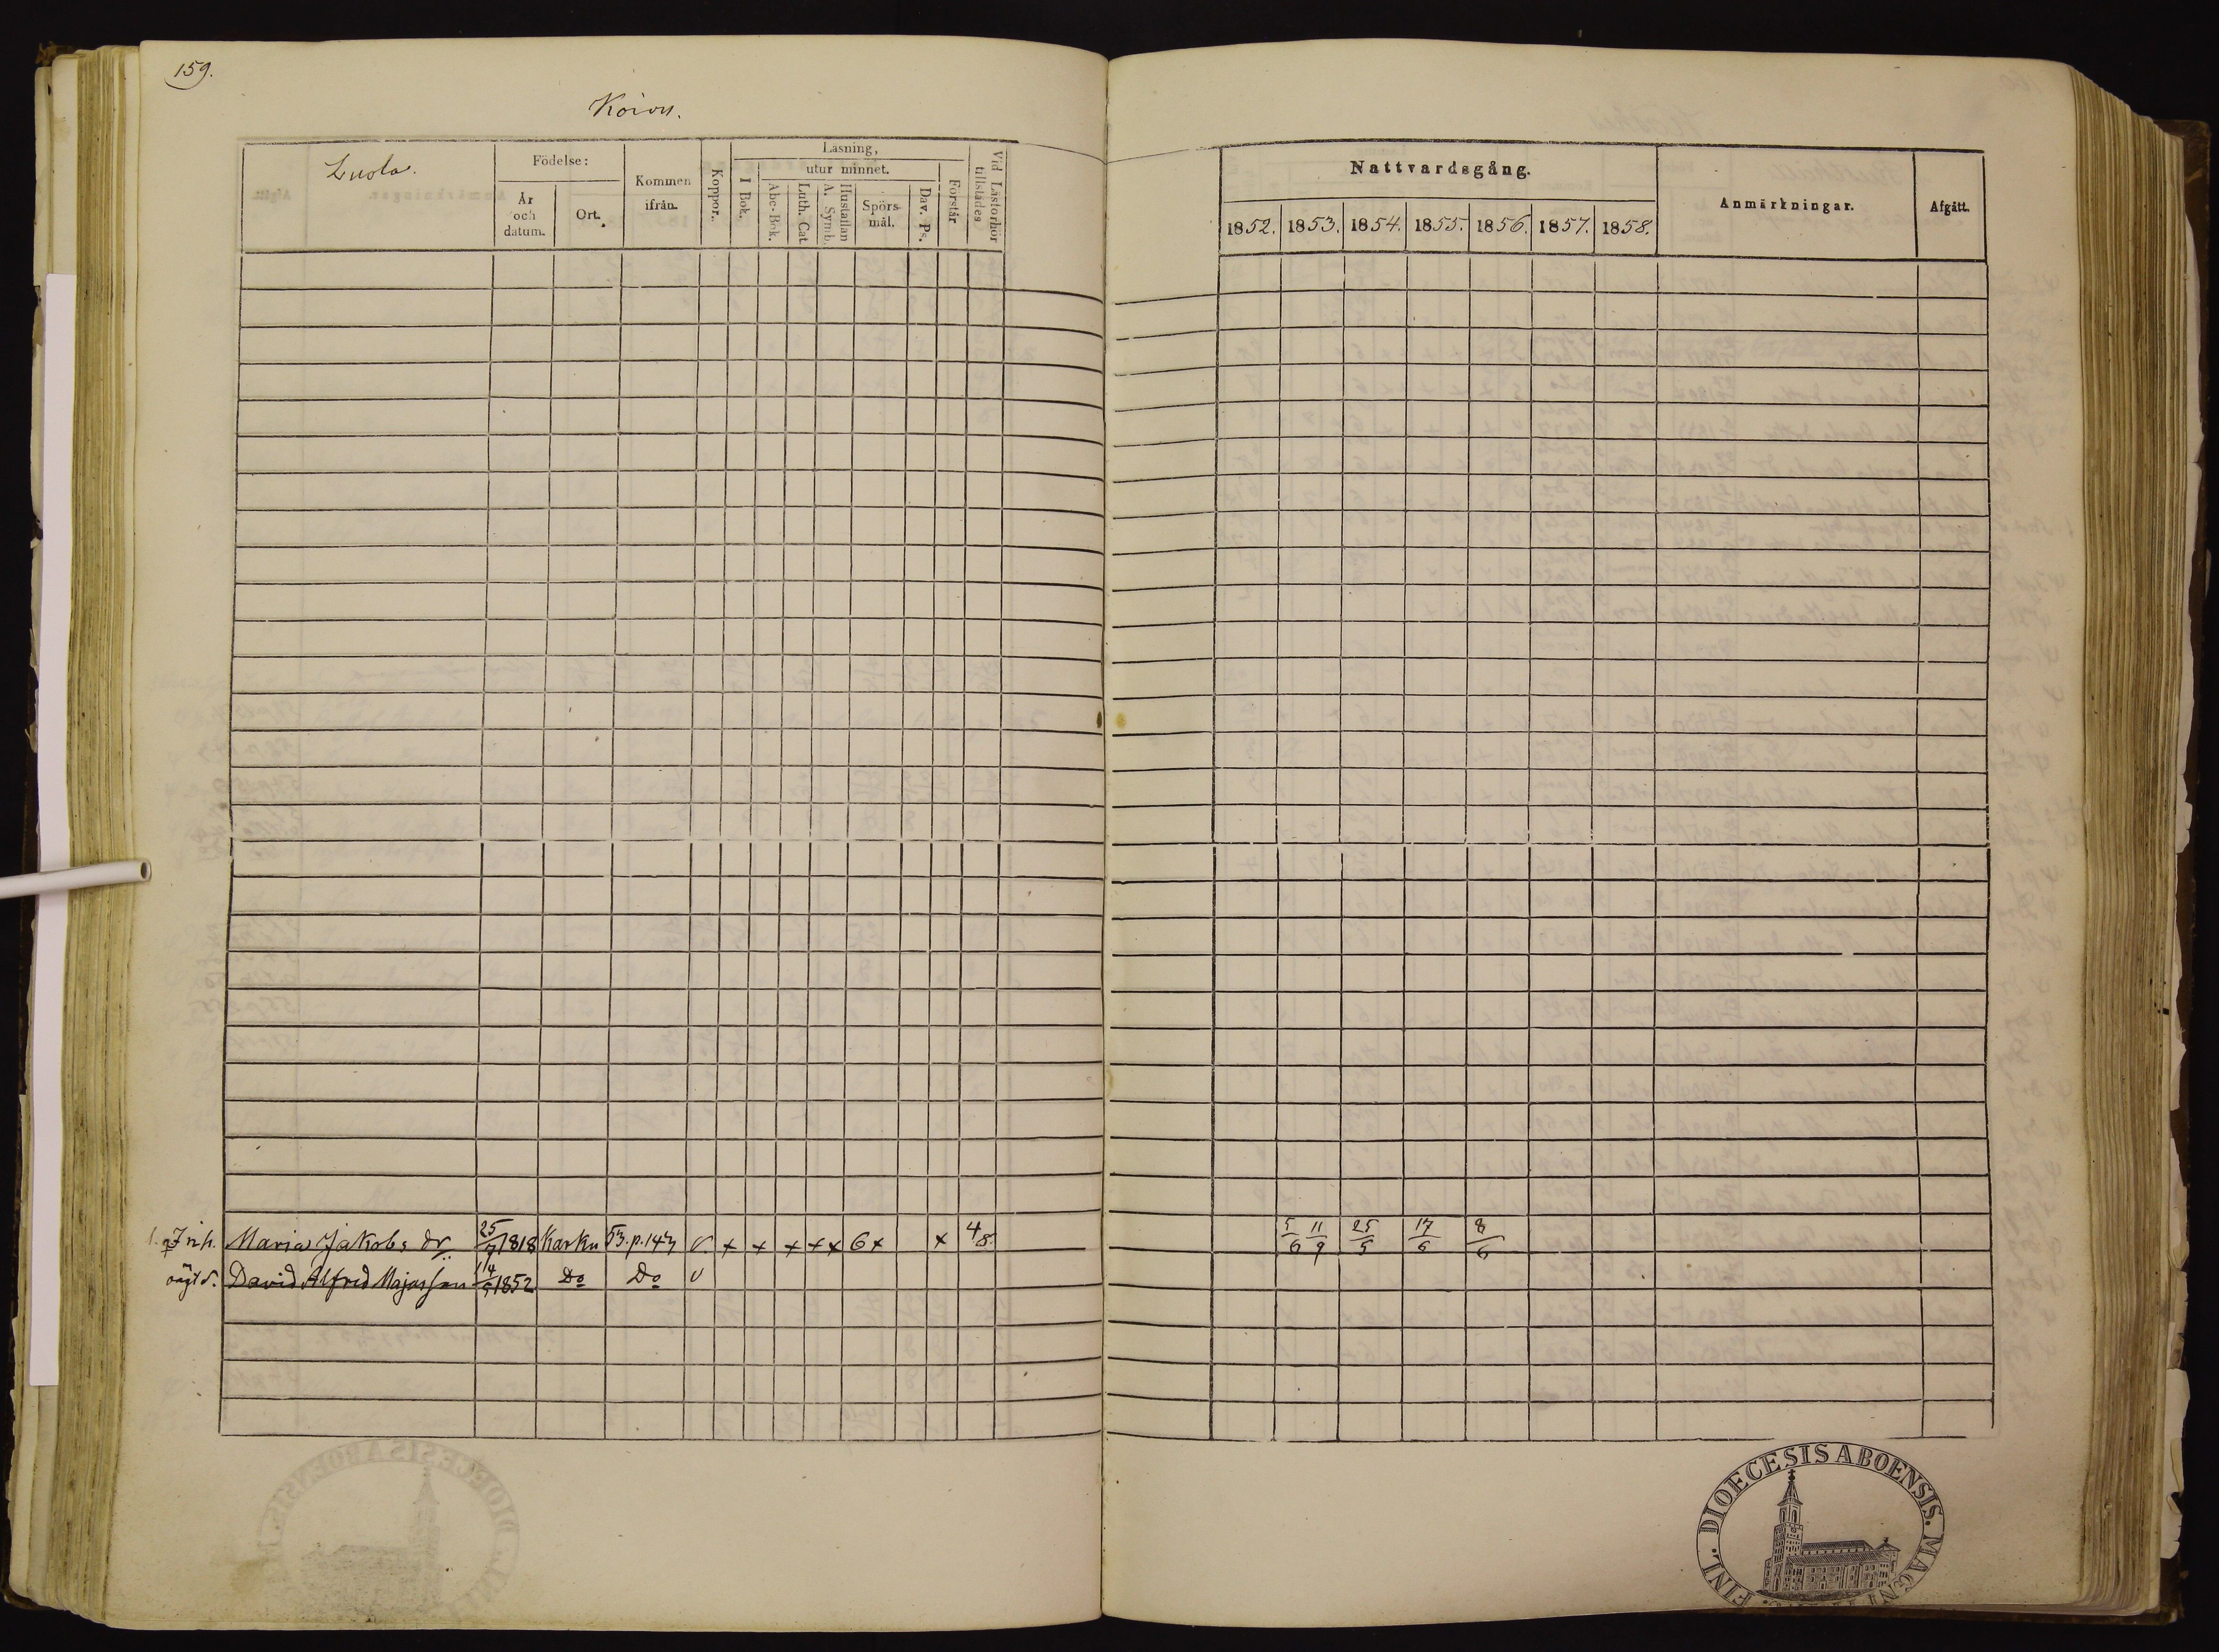 159.
Koivu.
Luola.
Födelse:
År
och
datum.
Ort.
Kommen
ifrån.
Koppor.
Läsning,
I Bok.
utur minnet.
Abc-Bok.
Luth. Cat.
Hustaflan
A. Symb.
Spörs-
mål.
Dav. Ps.
Förstår
Vid Läsförhör
tillstädes
Nattvardsgång.
1852. 1853. 1854. 1855. 1856. 1857. 1858.
Anmärkningar.
Afgått.
Inh. Maria Jakobs dr 25/7 1818 Karku 53.p.147 v. x x x x x 6 x x 4/8. 5/6 11/9 25/5 17/6 8/6
oägt S. David Alfred Majasson 14/5 1852 Do Do v
DIOECESIS ABOENSIS. MAGNI
FINL.